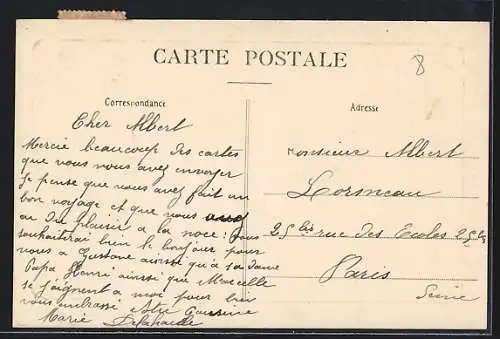 CARTE POSTALE
8
Correspondance
Adresse
Cher Albert
Mercie beaucoup des cartes
que vous nous avez envoyer
Je pense que vous avez fait un
bon voyage et que vous
au du plaisir a la noce: vous
souhaiterai bien le bonjour pour
nous a Gustave ainsie qu'a sa dame
Papa Henri ainsie que Marcelle
se joignent a moi pour
vous embrasse Votre Cousine
Marie
Monsieur Albert
Lormeau
25 bis rue des Ecoles 25 bis
Paris
Seine